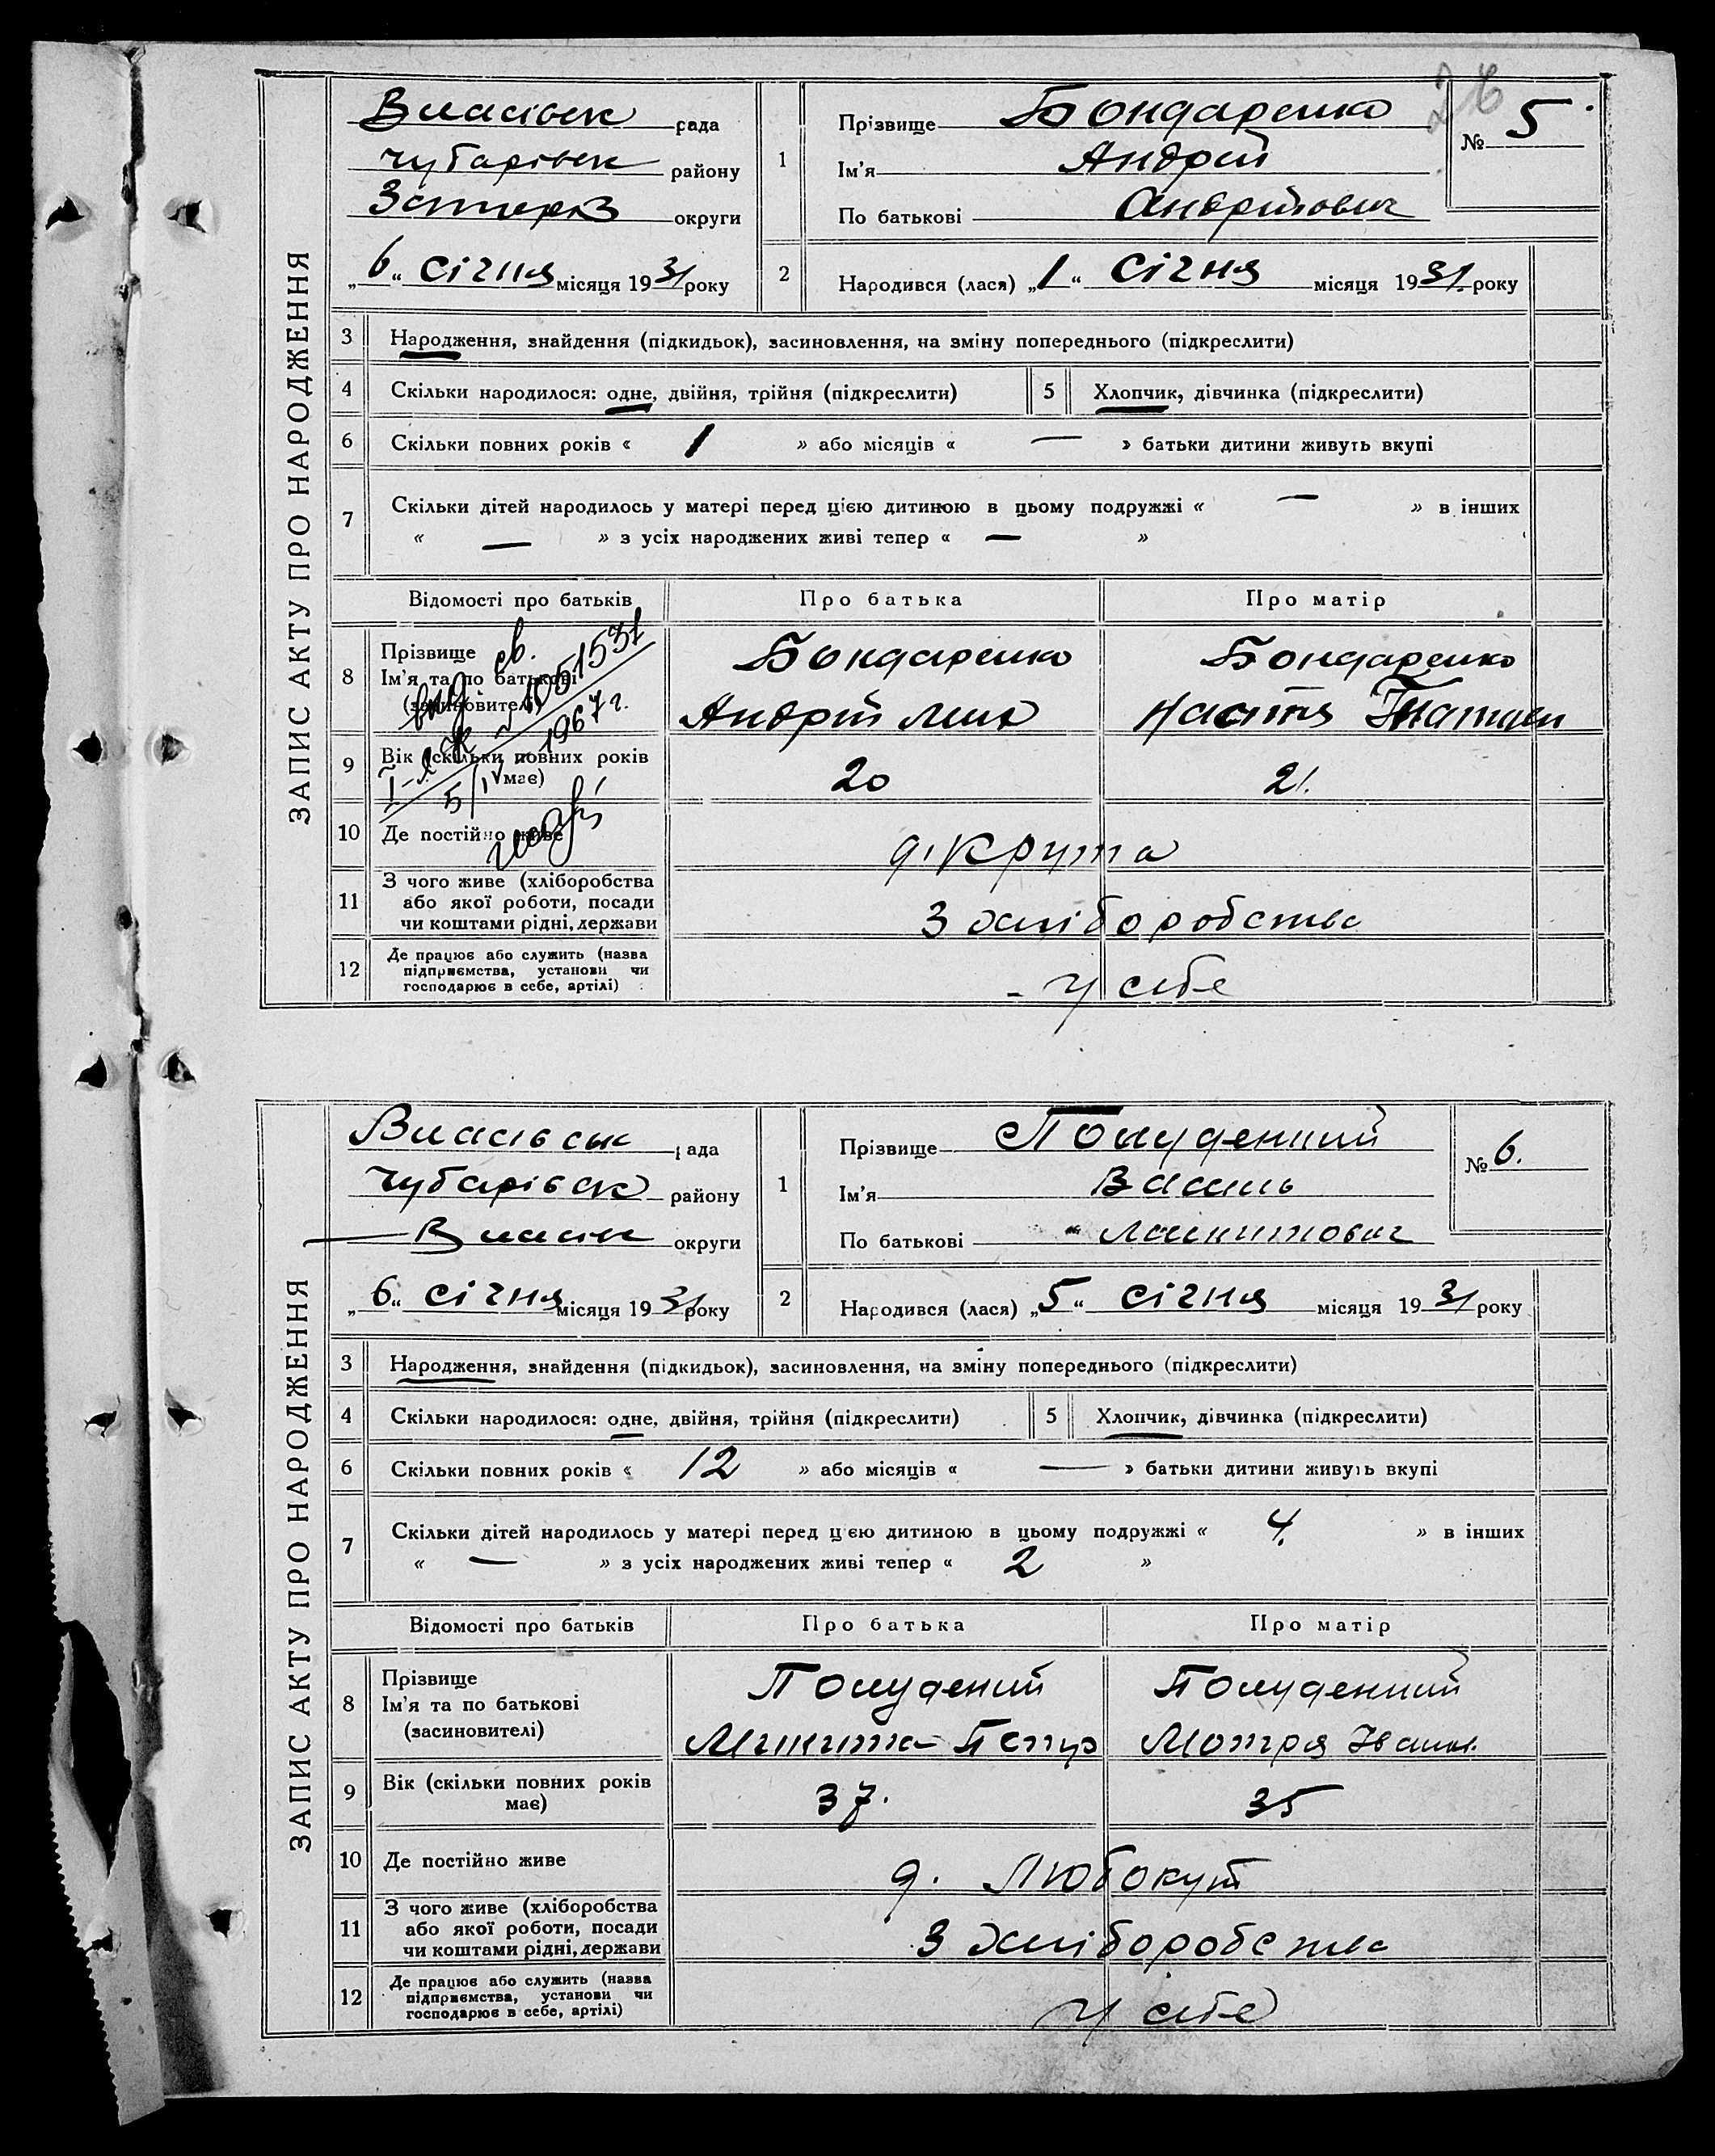 26
ЗАПИС АКТУ ПРО НАРОДЖЕННЯ
Власівск рада
Чубарівск району
округи
„6“ січня місяця 1931 року
1 Прізвище Бондаренко
Ім'я Андрій
По батькові Андрійович
№ 5
2 Народився (лася) „1“ січня місяця 1931 року
3 Народження, знайдення (підкидьок), засиновлення, на зміну попереднього (підкреслити)
4 Скільки народилося: одне, двійня, трійня (підкреслити) 5 Хлопчик, дівчинка (підкреслити)
6 Скільки повних років « 1 » або місяців « — » батьки дитини живуть вкупі
7 Скільки дітей народилось у матері перед цією дитиною в цьому подружжі « — » в інших
« — » з усіх народжених живі тепер « — »
Відомості про батьків Про батька Про матір
8 Прізвище Бондаренко Бондаренко
Ім'я та по батькові
(засиновителі) Андрій Настя
вид. св.
I-ЯЖ № 1051531
5/IV 1967 г.
9 Вік (скільки повних років має) 20 21.
10 Де постійно живе д. Крута
11 З чого живе (хліборобства
або якої роботи, посади
чи коштами рідні, держави З хліборобства
12 Де працює або служить (назва
підприємства, установи чи
господарює в себе, артілі) - у себе
ЗАПИС АКТУ ПРО НАРОДЖЕННЯ
Власівськ рада
Чубарівск району
округи
„6“ січня місяця 1931 року
1 Прізвище Полуденний
Ім'я Василь
По батькові Микитович
№ 6.
2 Народився (лася) „5“ січня місяця 1931 року
3 Народження, знайдення (підкидьок), засиновлення, на зміну попереднього (підкреслити)
4 Скільки народилося: одне, двійня, трійня (підкреслити) 5 Хлопчик, дівчинка (підкреслити)
6 Скільки повних років « 12 » або місяців « — » батьки дитини живуть вкупі
7 Скільки дітей народилось у матері перед цією дитиною в цьому подружжі « 4. » в інших
« — » з усіх народжених живі тепер « 2 »
Відомості про батьків Про батька Про матір
8 Прізвище Полудений Полуденний
Ім'я та по батькові
(засиновителі) Микита Петр Мотря Іван.
9 Вік (скільки повних років має) 37. 35
10 Де постійно живе д. Любокут
11 З чого живе (хліборобства
або якої роботи, посади
чи коштами рідні, держави З хліборобства
12 Де працює або служить (назва
підприємства, установи чи
господарює в себе, артілі) у себе